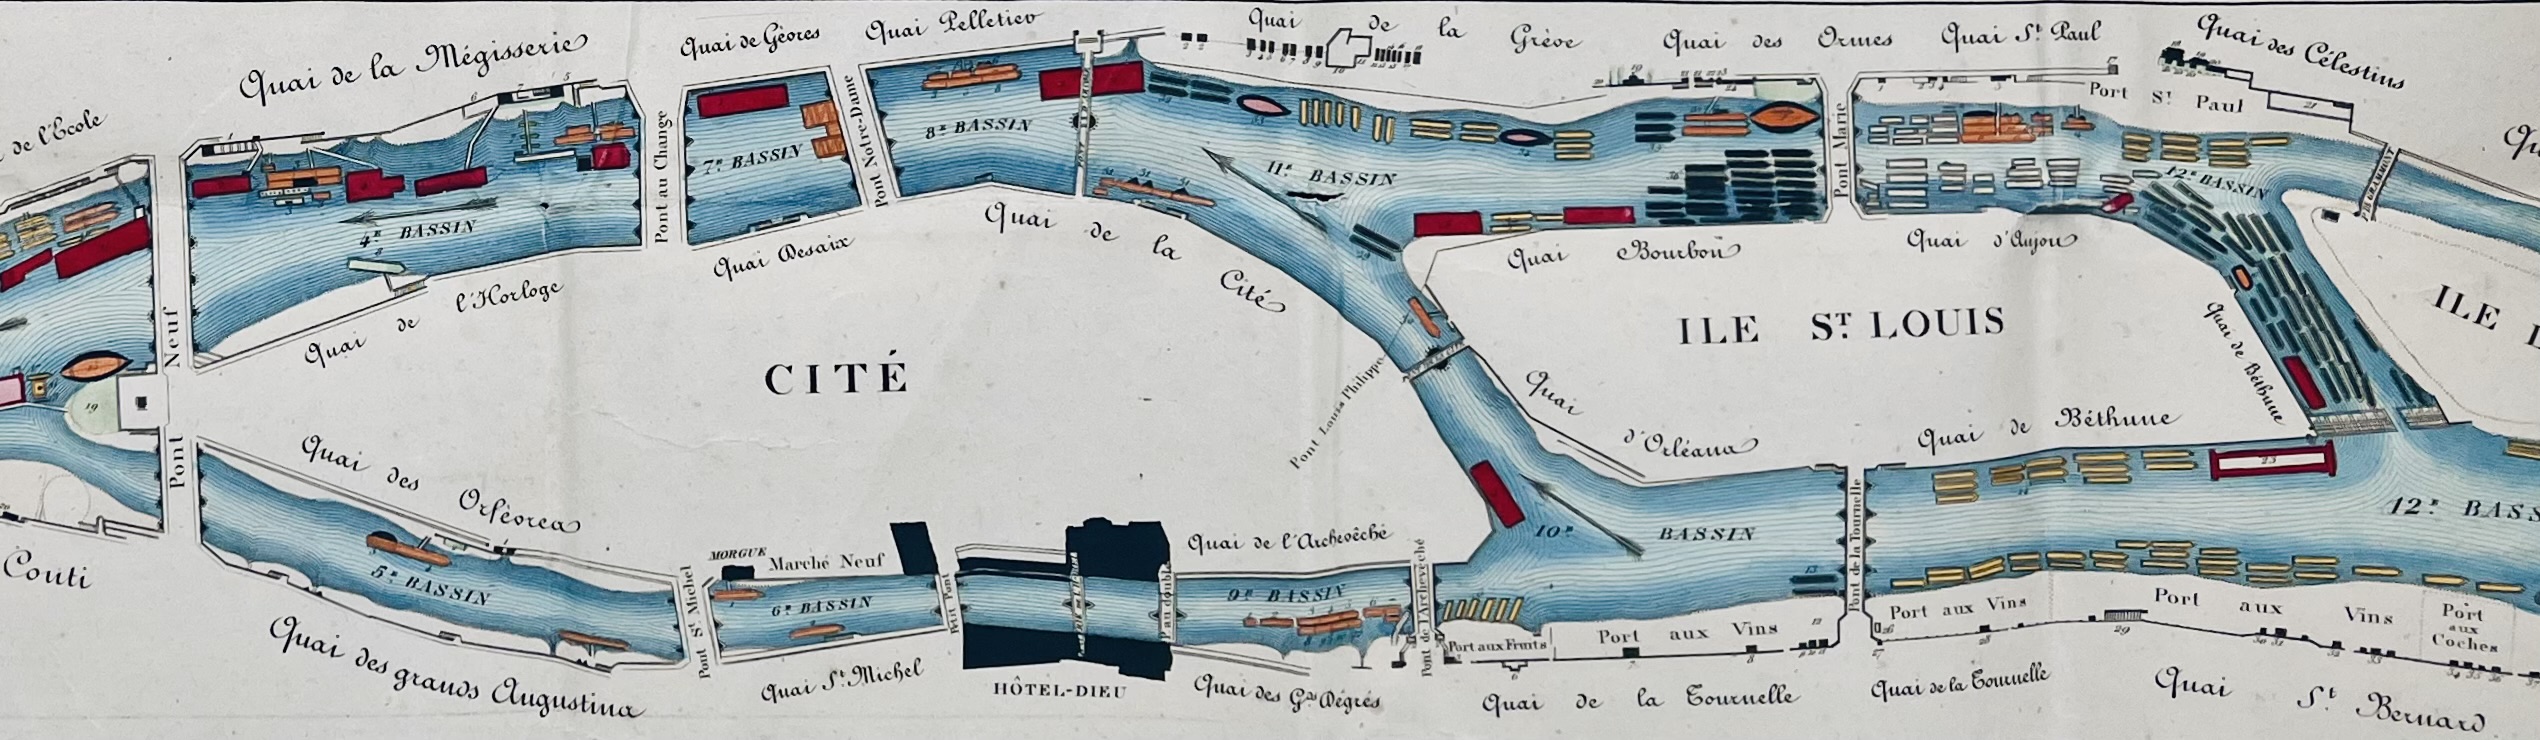 de l'Ecole
Quai de la Mégisserie
Quai de Gèvres
Quai Pelletier
Quai de la Grève
Quai des Ormes
Quai St. Paul
Quai des Célestins
Port St. Paul
Pont Neuf
4e BASSIN
Quai de l'Horloge
Pont au Change
7e BASSIN
Quai Desaix
Pont Notre-Dame
8e BASSIN
Quai de la Cité
11e BASSIN
Pont Marie
12e BASSIN
Quai Bourbon
Quai d'Anjou
CITÉ
ILE ST. LOUIS
ILE
Quai de Béthune
Pont Louis Philippe
Quai d'Orléans
Quai de Béthune
23
19
Conti
Quai des Orfèvres
5e BASSIN
Quai des grands Augustins
Pont St. Michel
MORGUE
Marché Neuf
6e BASSIN
Quai St. Michel
Petit Pont
HÔTEL-DIEU
P. au double
Quai de l'Archevêché
9e BASSIN
Quai des Gds Dégrés
Pont de l'Archevêché
10e BASSIN
Port aux Fruits
Port aux Vins
Quai de la Tournelle
Pont de la Tournelle
12e BASS
Port aux Vins
Quai de la Tournelle
Port aux Vins
Port
aux
Coches
Quai St. Bernard